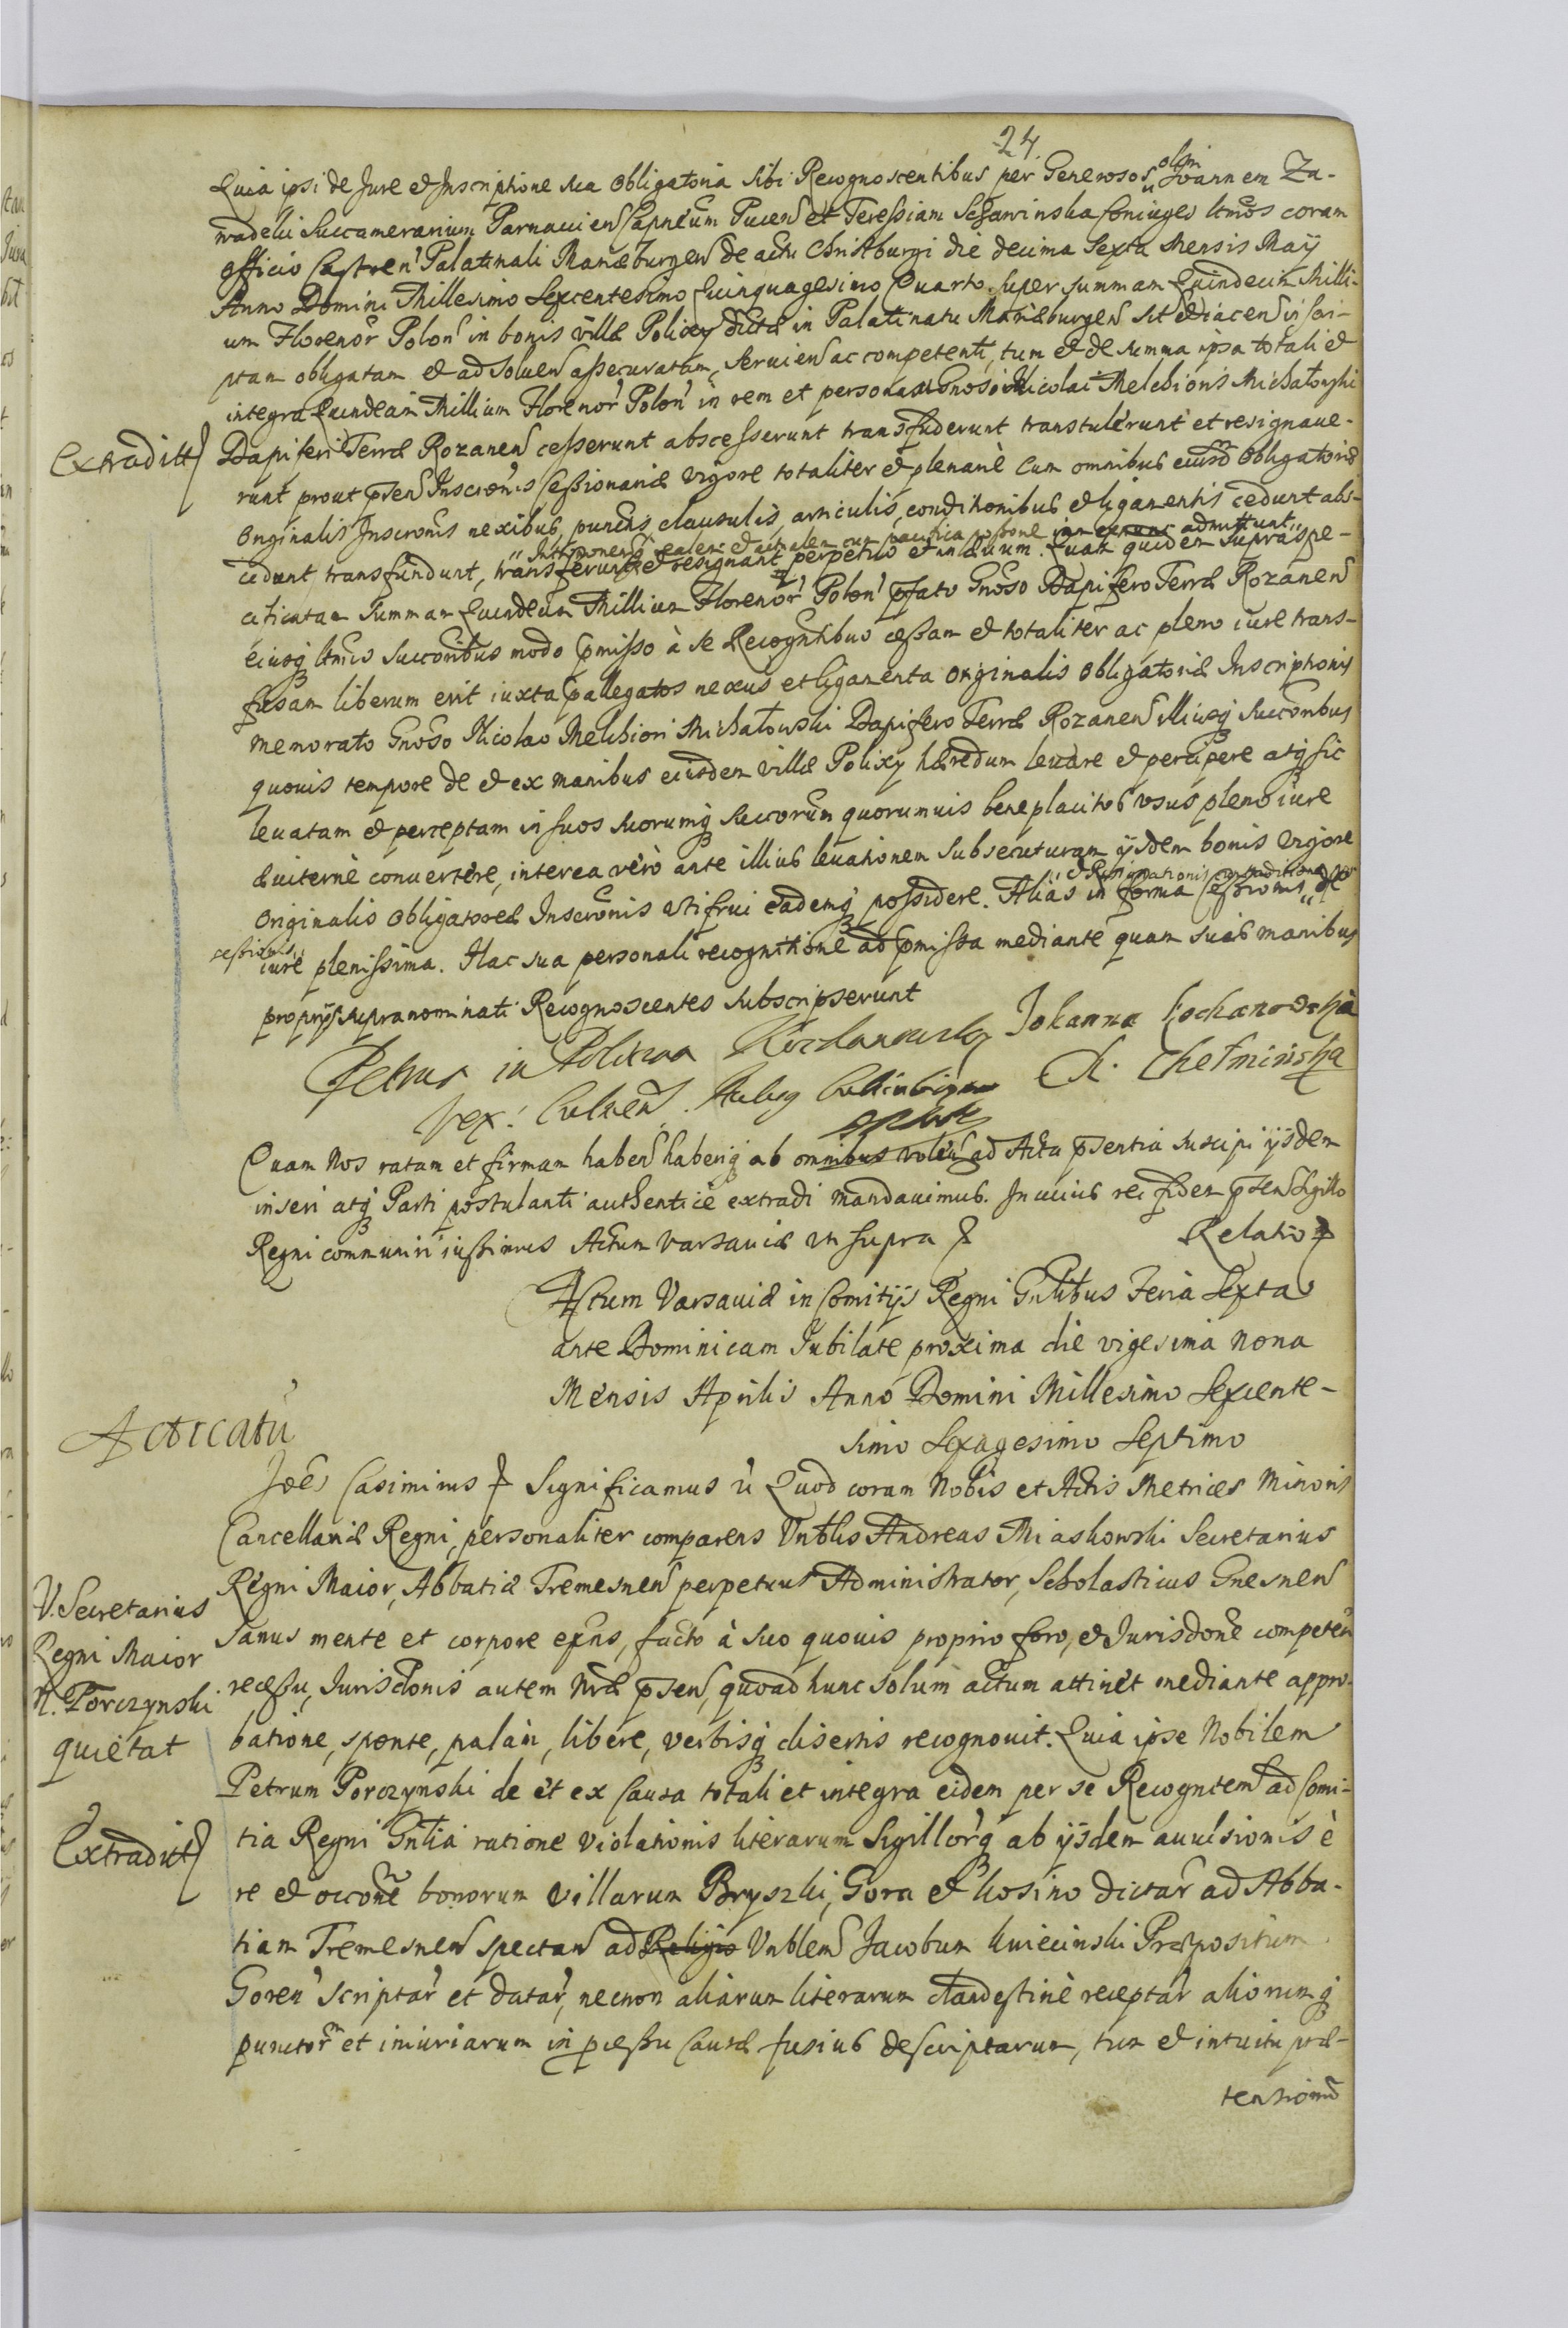 24
Quia ipsi de Jure et Inscriptione sua obligatoria sibi Recognoscentibus per Generosos olim Joannem Za-
wadzki Succamerarium Parnavien Capneum Pucen et Teressiam Coniuges ltmos coram
officio Castren Palatinali Mariæburgen de actu Christburgi die decima Sexta Mensis Maÿ
Anno Domini Millesimo Sexcentesimo Quinquagesimo Quarto super summam Quindecim Milli-
um Florenor Polon in bonis villæ Polixy dictæ in Palatinatu Mariæburgen sit et iacen inscri-
ptam obligatam et ad solven assecuratam, servien ac competenti, tum et de summa ipsa totali et
integra Quindecim Millium Florenor Polon in rem et personam Gnosi Nicolai Melchioris Michałowski
Extraditt
Dapiferi Terræ Rozanen cesserunt abscesserunt transfuderunt transtulerunt et resignave-
runt prout psen Inscronis Cessionariæ vigore totaliter et plenariè cum omnibus eiusd Obligatoriæ
Originalis Inscronis nexibus, punctis, clausulis, articulis, conditionibus et ligamentis cedunt abs-
cedunt, transfundunt, transferunt et resignant perpetuo et in ævum. Quam quidem supraspe-
" Intromonemq realem et actualem cum pacifica possone admittunt "
cificatam Summam Quindecim Millium Florenor Polon pfato Gnoso Dapifero Terræ Rozanen
eiusq ltmis Succoribus modo pmisso à se Recogntibus cessam et totaliter ac pleno iure trans-
fusam liberum erit iuxta pallegatos nexus et ligamenta originalis obligatoriæ Inscriptionis
memorato Gnoso Nicolao Melchiori Michałowski Dapifero Terræ Rozanen illiusq Succoribus
quovis tempore de et ex manibus eiusdem villæ Polixy hæredum levare et percipere atq sic
levatam et perceptam in suos suorumq Succorum quorumvis beneplacitos usus pleno iure
æviternè convertere, interea verò ante illius levationem subsecuturam ijsdem bonis vigore
originalis obligatoriæ Inscronis utifrui eademq possidere. Aliàs in forma Cessionis " de
" et Resignationis
cessionis "
iure plenissima. Hac sua personali recognitione ad pmissa mediante quam suis manibus
proprijs supranominati Recognoscentes subscripserunt
Petrus in Policzna Kochanowsky Johanna Kochanowska
Vex: Culmen. Ch. Chełmińska
Quam Nos ratam et firmam haben haberiq ab omnibus volen ad Acta psentia suscipi ijsdem
inseri atq Parti postulanti authenticè extradi mandavimus. In cuius rei fidem psen Sigillo
Regni communiri iussimus Actum Varsaviæ ut supra
Relatio
Actum Varsaviæ in Comitijs Regni Gnlibus Feria Sexta
ante Dominicam Jubilate proxima die vigesima nona
Mensis Aprilis Anno Domini Millesimo Sexcente-
simo Sexagesimo Septimo
Acticatu
Joes Casimirus Significamus Quod coram Nobis et Actis Metrices Minoris
Cancellariæ Regni, personaliter comparens Vnblis Andreas Miaskowski Secretarius
Regni Maior, Abbatiæ Tremesnen perpetuus Administrator, Scholasticus Gnesnen
V. Secretarius
Regni Maior
N. Porczynski
quietat
sanus mente et corpore exns, facto à suo quovis proprio foro, et Jurisdone competen
recessu, Jurisdonis autem Nræ psen, quoad hunc solùm actum attinet mediante appro-
batione, sponte, palàm, liberè, verbisq disertis recognovit. Quia ipse Nobilem
Petrum Porczynski de et ex Causa totali et integra eidem per se Recogntem ad Comi-
Extraditt
tia Regni Gnlia ratione violationis literarum Sigillorq ab ijsdem avulsionis è
re et occone bonorum villarum Bryszki, Gora et Kosino dictar ad Abba-
tiam Tremesnen spectan ad Religio Vnblem Jacobum Kwiecinski Præpositum
Goren scriptar et datar, necnon aliarum literarum clandestinè receptar aliorumq
punctorm et iniuriarum in pcessu Causæ fusius descriptarum, tum et intuitu præ-
tensionu